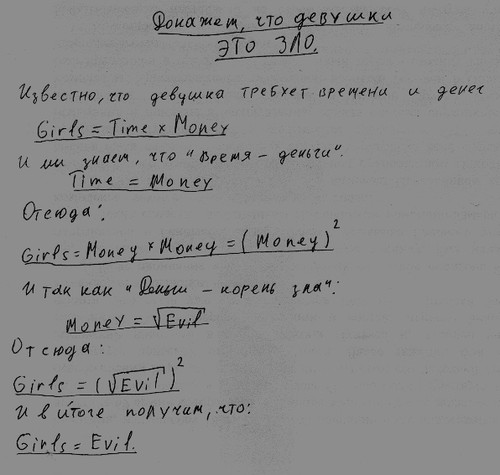 Докажет, что девушки
ЭТО ЗЛО.
Известно, что девушка требует времени и денег
Girls = Time × Money
И ми знает, что "Время – деньги".
Time = Money
Отсюда:
Girls = Money × Money = (Money)²
И так как "Деньги – корень зла":
Money = √Evil
Отсюда:
Girls = (√Evil)²
И в итоге получим, что:
Girls = Evil.